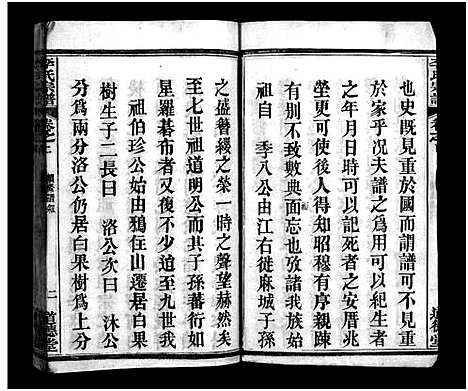 也史既見重於國而謂譜可不見重
於家乎况夫譜之為用可以紀生者
之年月日時可以記死者之安厝兆
塋更可使後人得知昭穆有序親踈
有別不致數典而忘也攷諸我族始
祖自 季八公由江右徙麻城子孫
之盛簪纓之榮一時之聲望赫然矣
至七世祖道明公而其子孫蕃衍如
星羅碁布者又復不少道至九世我
祖伯珍公始由鴉住山遷居白果
樹生子二長曰 洛公次曰 沐公
分為兩分洛公仍居白果樹為上分
李氏宗譜
卷之
二
道德堂